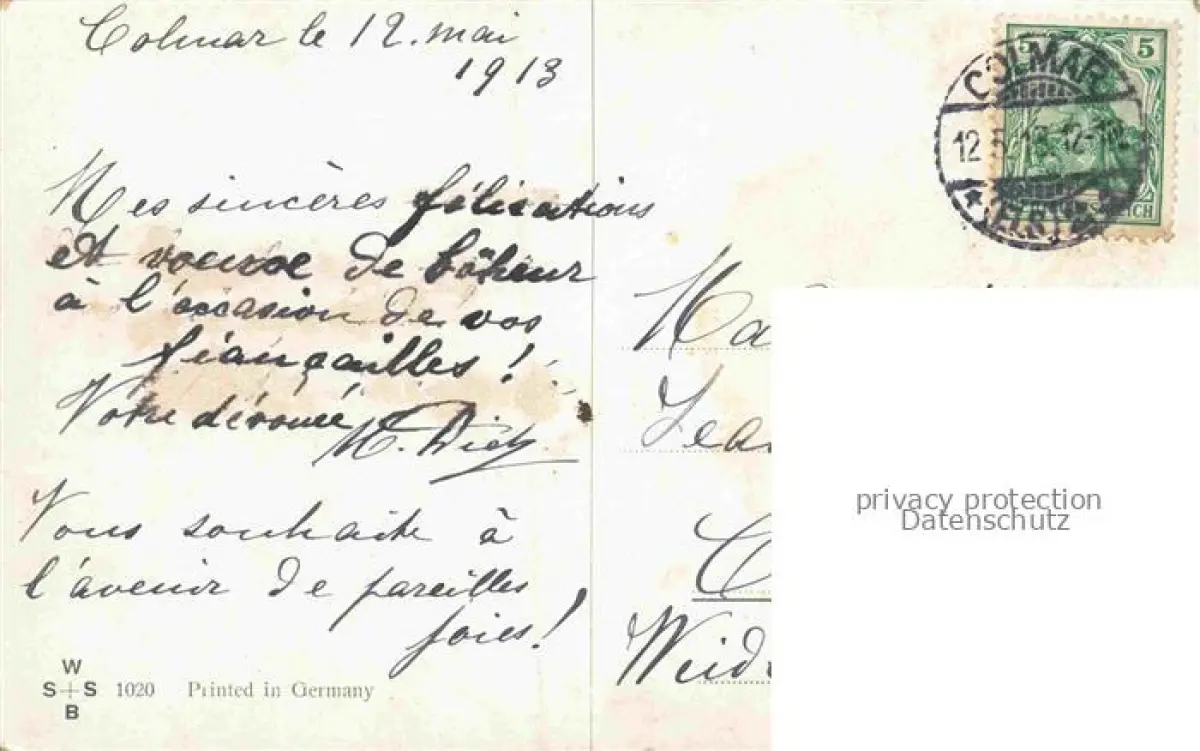 Colmar le 12. mai
1913
Mes sincères félications
et voeuse de böheur
à l'occasion de vos
fiançailles !
Votre dévouée
Vous souhaite à
l'avenir de pareilles
joies!
W
S S 1020 Printed in Germany
B
5 5
COLMAR
12 5 13 12-1
(ELS)
REICH
privacy protection
Datenschutz